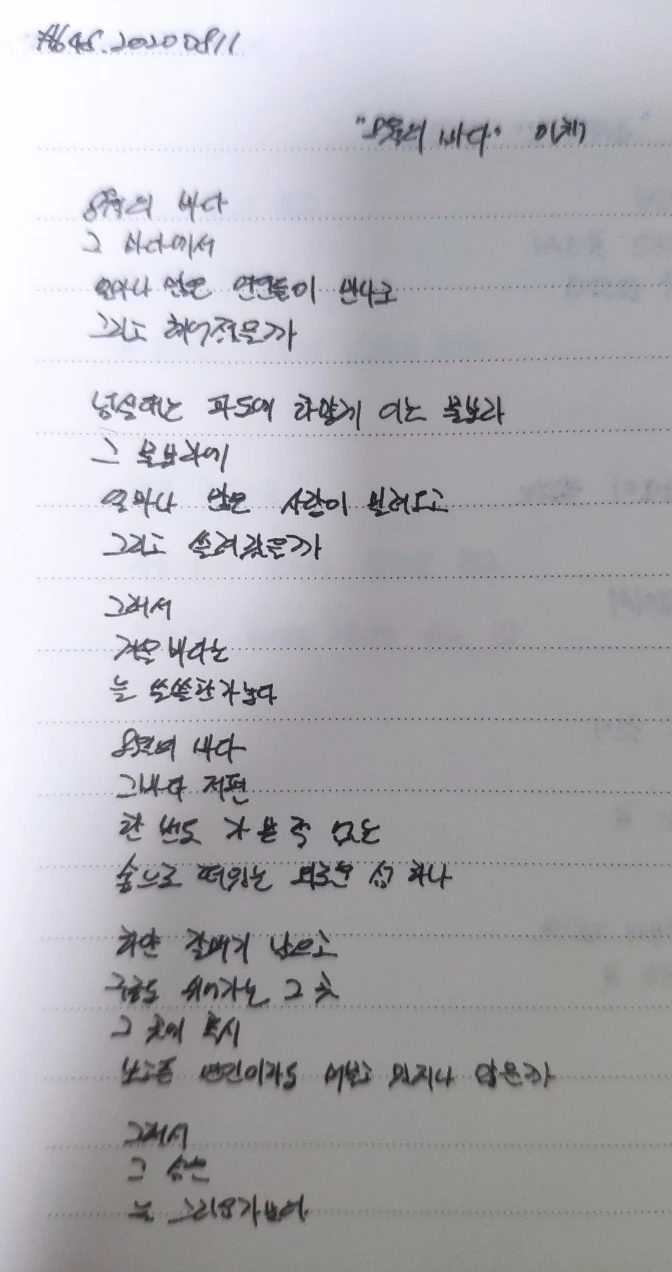 #645. 20200811
"8월의 바다" 이채
8월의 바다
그 바다에서
얼마나 많은 연인들이 만나고
그리고 헤어졌을까
넘실대는 파도에 하얗게 이는 물보라
그 물보라에
얼마나 많은 사랑이 밀려오고
그리고 쓸려갔을까
그래서
겨울바다는
늘 쓸쓸한가 보다
8월의 바다
그 바다 저편
한 번도 가 본 적 없는
숲으로 떠있는 외로운 섬 하나
하얀 갈매기 날으고
구름도 쉬어가는 그 곳
그 곳에 혹시
보고픈 연인이라도 머물고 있지나 않은가
그래서
그 섬은
늘 그리운가 보다.